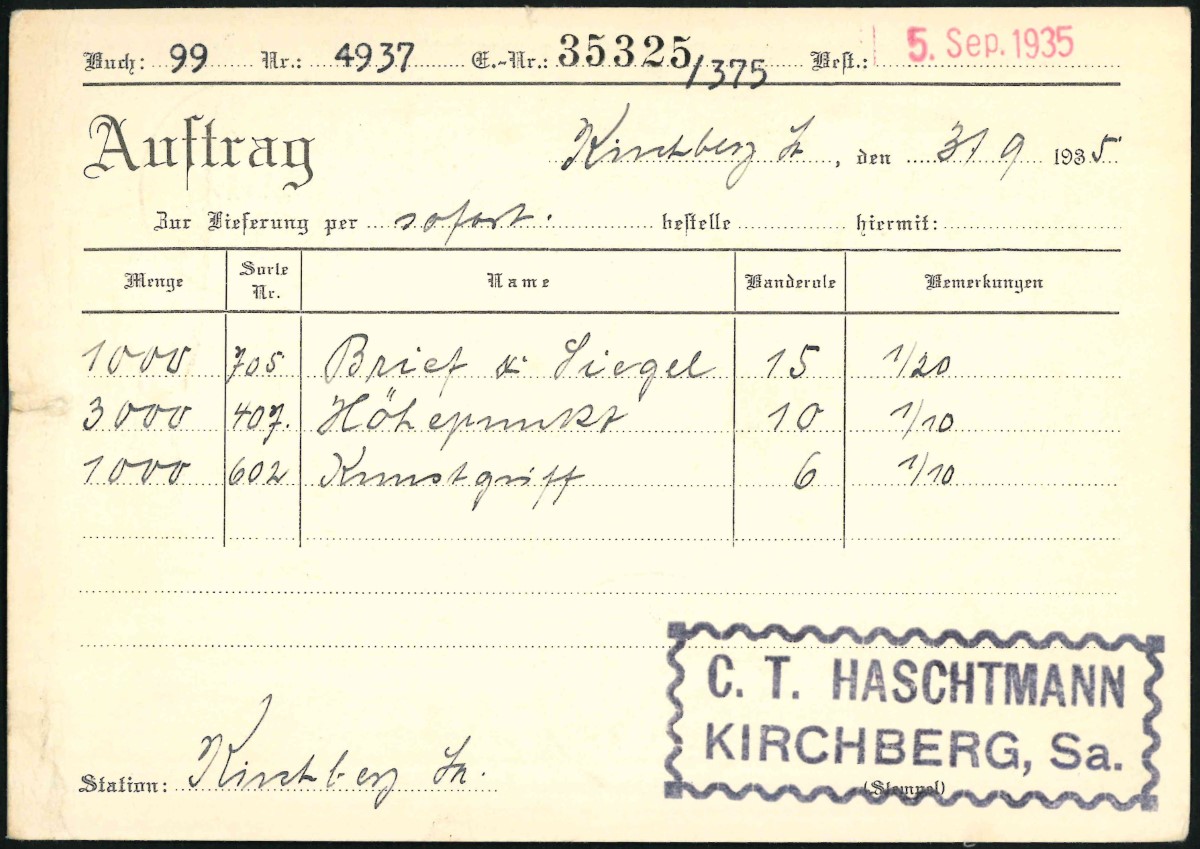 Buch: 99 Nr.: 4937 E.-Nr.: 35325/375 Best.: 5. Sep. 1935
Auftrag
Kirchberg Sa, den 3/9 1935
Zur Lieferung per sofort. bestelle hiermit:
Menge Sorte Nr. Name Banderole Bemerkungen
1000 705 Brief & Siegel 15 1/20
3000 407. Höhepunkt 10 1/10
1000 602 Kunstgriff 6 1/10
C. T. HASCHTMANN
KIRCHBERG, Sa.
Station: Kirchberg Sa.
(Stempel)